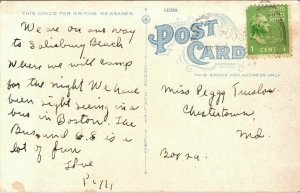 THIS SPACE FOR WRITING MESSAGES
We are on our way
to Salisbury Beach
Where we will camp
for the night We have
been sight seeing in a
bus in Boston. The
Bus and is a
lot of fun
Love
Peggy
POST CARD
THIS SPACE FOR ADDRESS ONLY
1 CENT
Miss Peggy Truslow
Chestertown,
Md.
Box